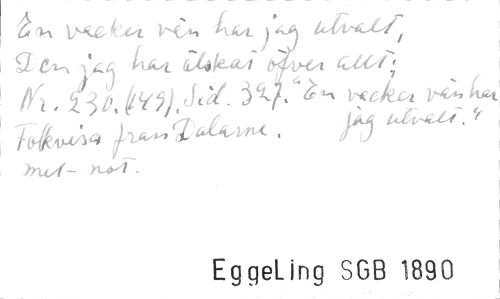 En vacker vän har jag utvalt,
Den jag har älskat öfver allt;
Nr. 230. (149). Sid. 327. "En vacker vän har
jag utvalt."
Folkvisa från Dalarne.
met- not.
EggeLing SGB 1890